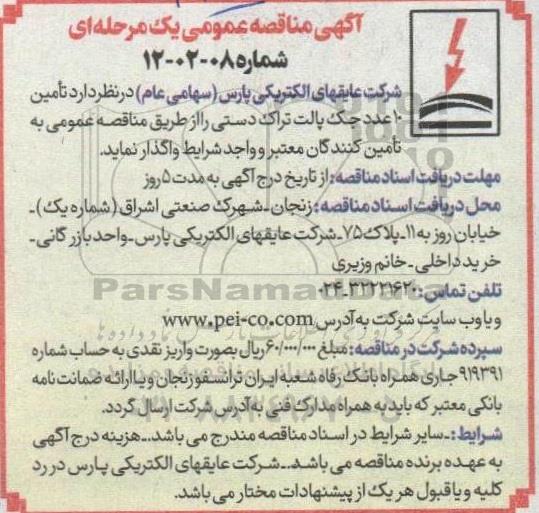 آگهی مناقصه عمومی یک مرحله‌ای
شماره ۰۸-۰۲-۱۲
شرکت عایقهای الکتریکی پارس (سهامی عام) در نظر دارد تأمین
۱۰ عدد جک پالت تراک دستی را از طریق مناقصه عمومی به
تأمین کنندگان معتبر و واجد شرایط واگذار نماید.
مهلت دریافت اسناد مناقصه: از تاریخ درج آگهی به مدت ۵ روز
محل دریافت اسناد مناقصه: زنجان ـ شهرک صنعتی اشراق (شماره یک) ـ
خیابان روز به ۱۱ـ پلاک ۷۵ـ شرکت عایقهای الکتریکی پارس ـ واحد بازرگانی ـ
خرید داخلی ـ خانم وزیری
تلفن تماس: ۳۲۲۲۱۶۲۰-۰۲۴
و یا وب سایت شرکت به آدرس www.pei-co.com
سپرده شرکت در مناقصه: مبلغ ۶۰/۰۰۰/۰۰۰ ریال بصورت واریز نقدی به حساب شماره
۹۱۹۳۹۱ جاری همراه بانک رفاه شعبه ایران ترانسفو زنجان و یا ارائه ضمانت نامه
بانکی معتبر که باید به همراه مدارک فنی به آدرس شرکت ارسال گردد.
شرایط: ـ سایر شرایط در اسناد مناقصه مندرج می باشد. ـ هزینه درج آگهی
به عهده برنده مناقصه می باشد. ـ شرکت عایقهای الکتریکی پارس در رد
کلیه و یا قبول هر یک از پیشنهادات مختار می باشد.
ParsNamadData